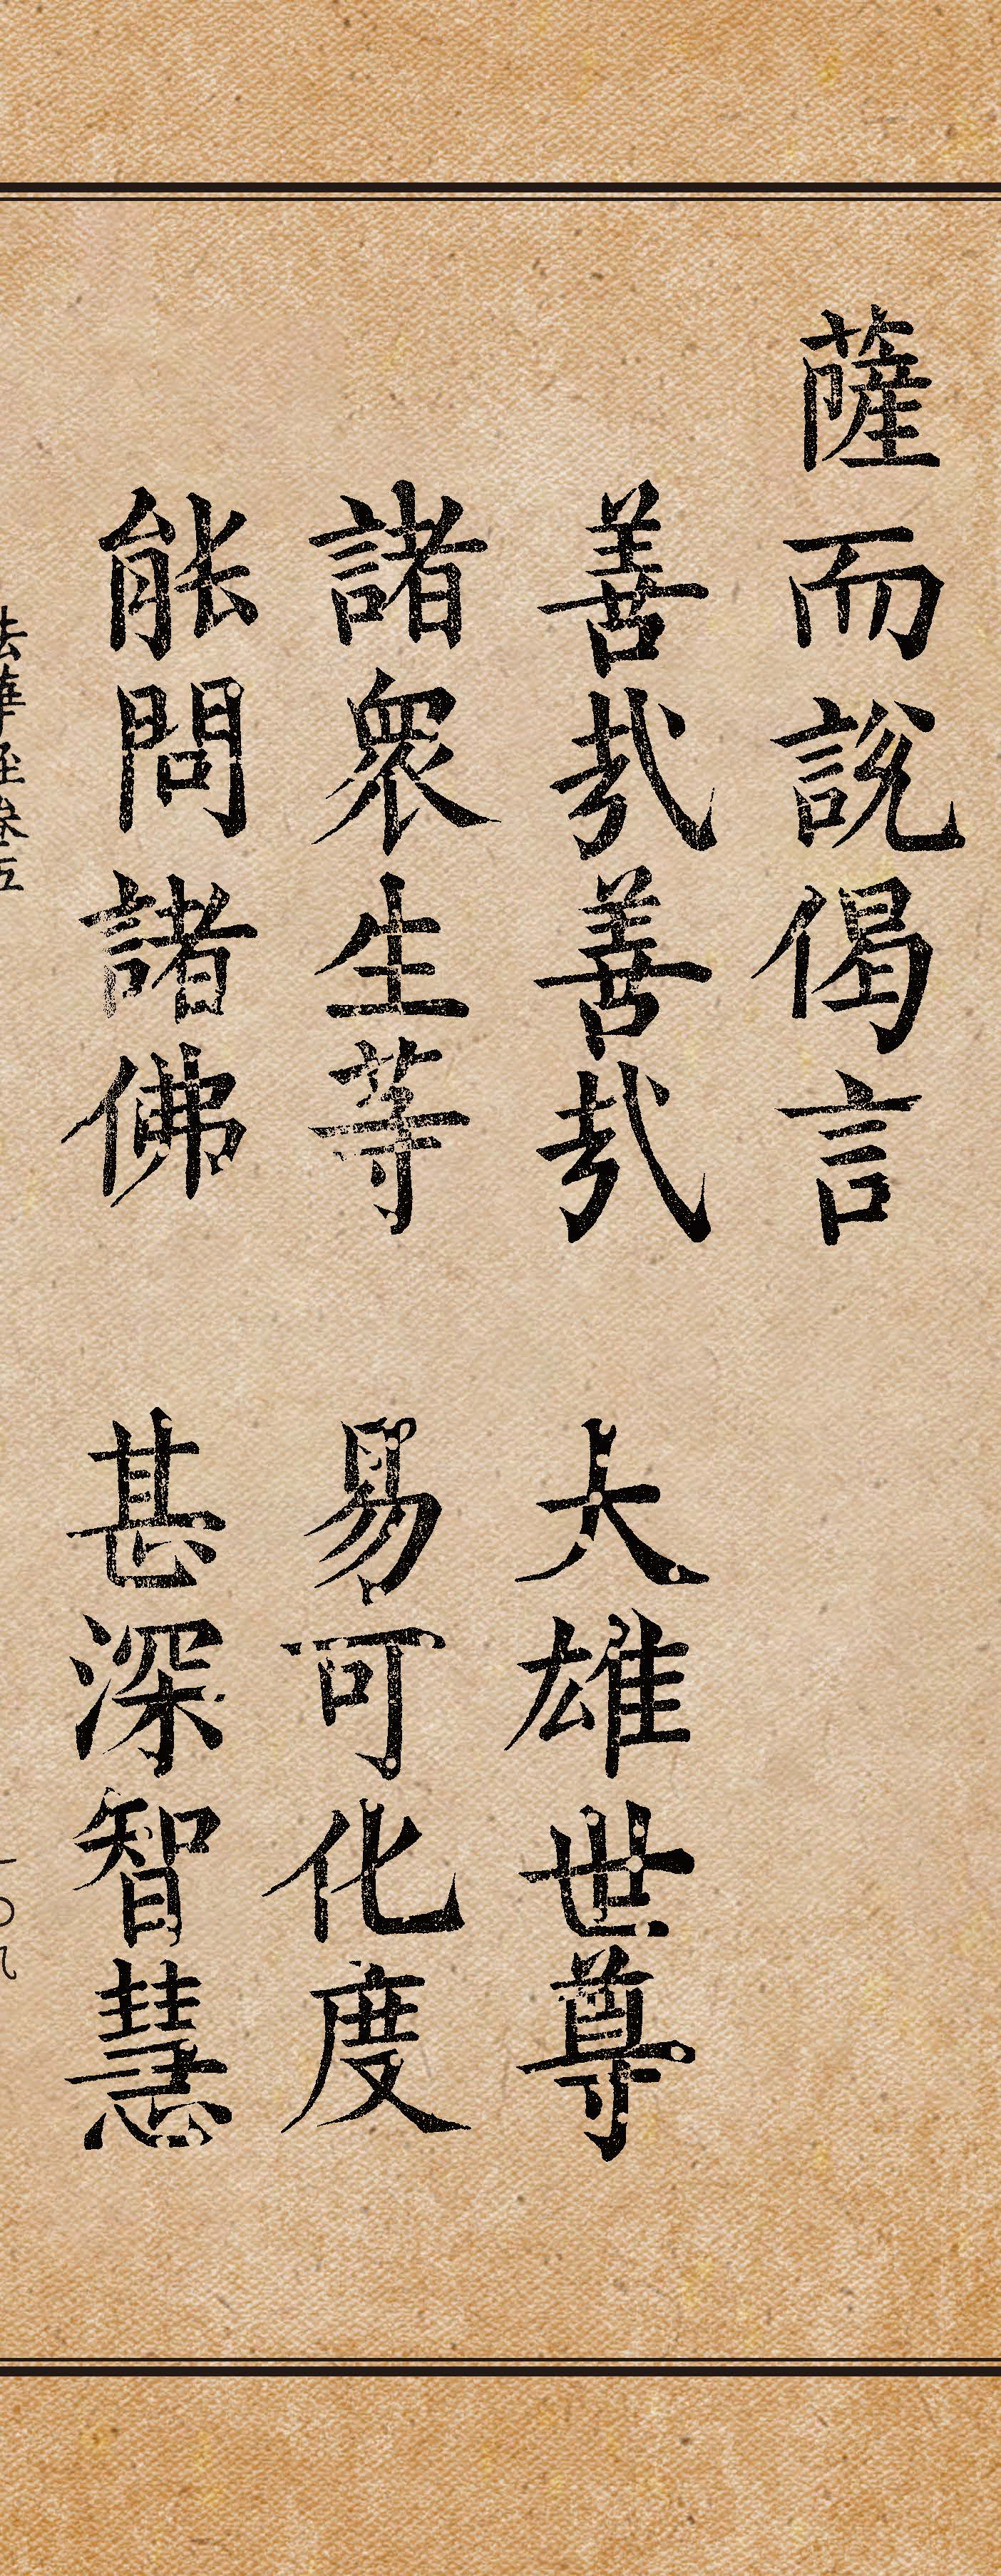 薩而說偈言
善哉善哉 大雄世尊
諸眾生等 易可化度
能問諸佛 甚深智慧
法華經卷五 一〇九